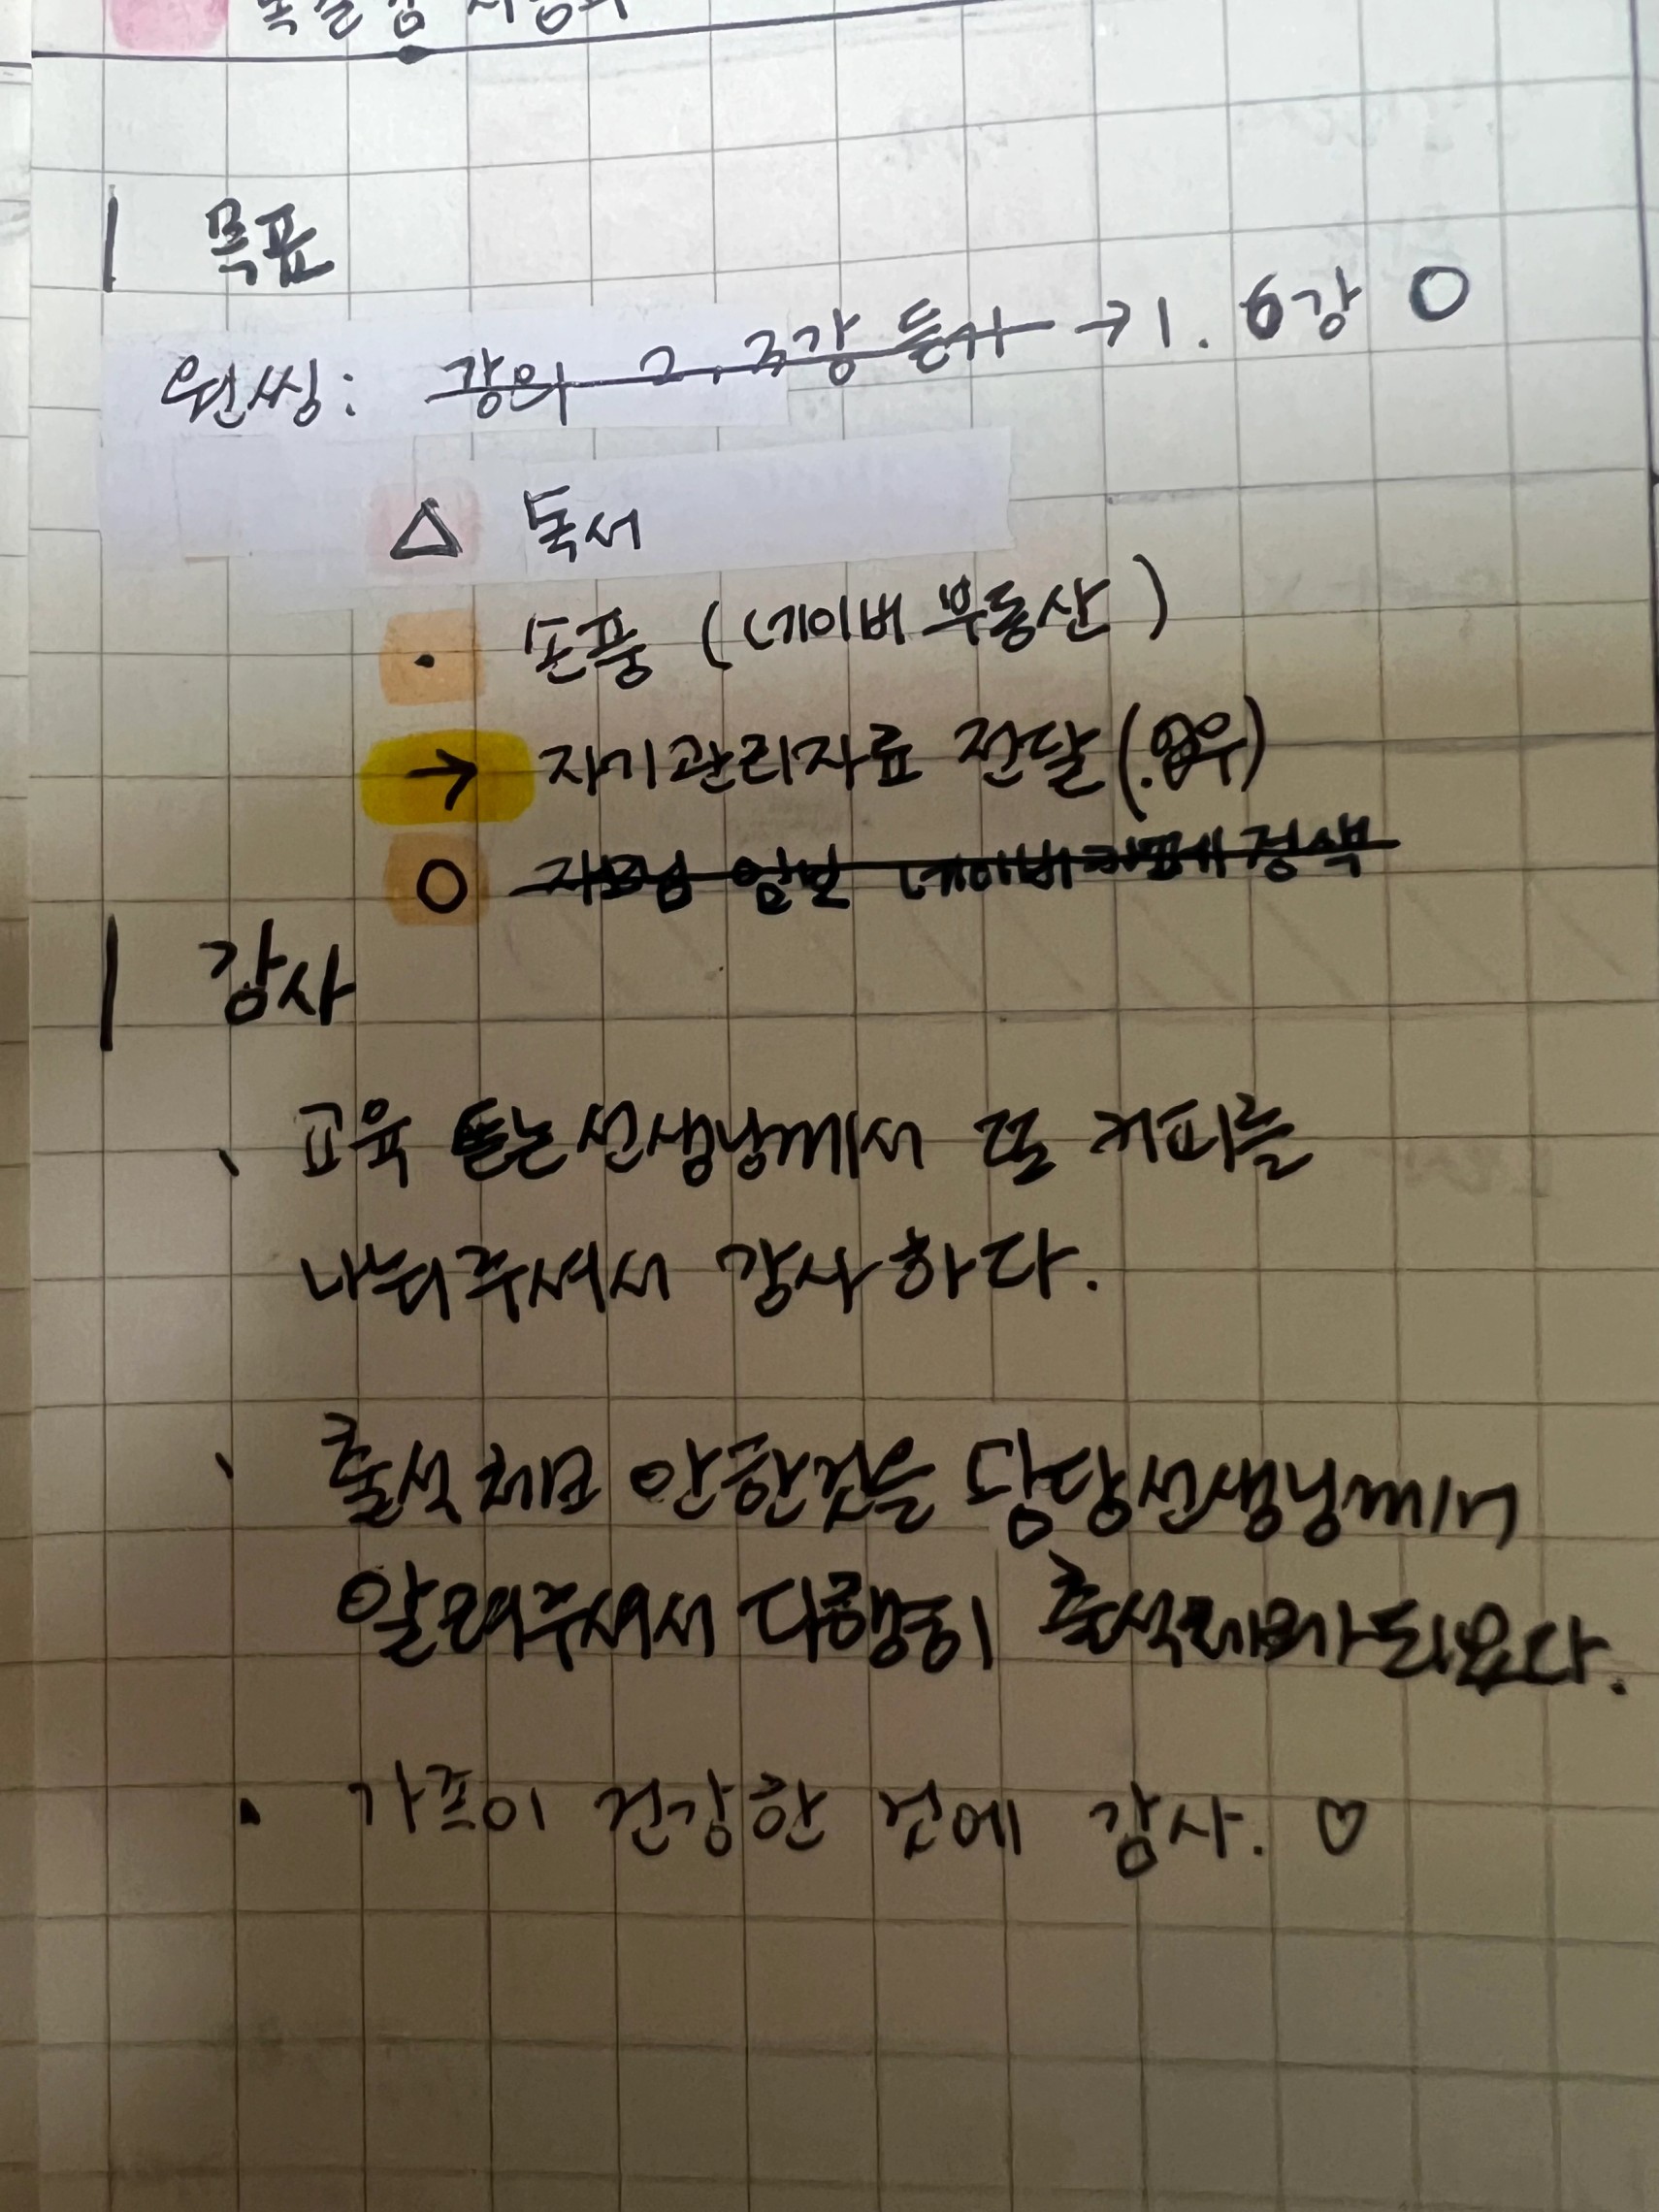 목표
원씽: 강의 2, 3강 듣기 → 1. 6강 O
△ 독서
· 손품 (네이버 부동산)
→ 자기관리자료 전달(
O 네이버 카페 검색
감사
교육 듣는선생님께서 또 커피를
나눠주셔서 감사하다.
출석 체크 안한것을 담당선생님께서
알려주셔서 다행히 출석체크가 되었다.
· 가족이 건강한 것에 감사. ♡